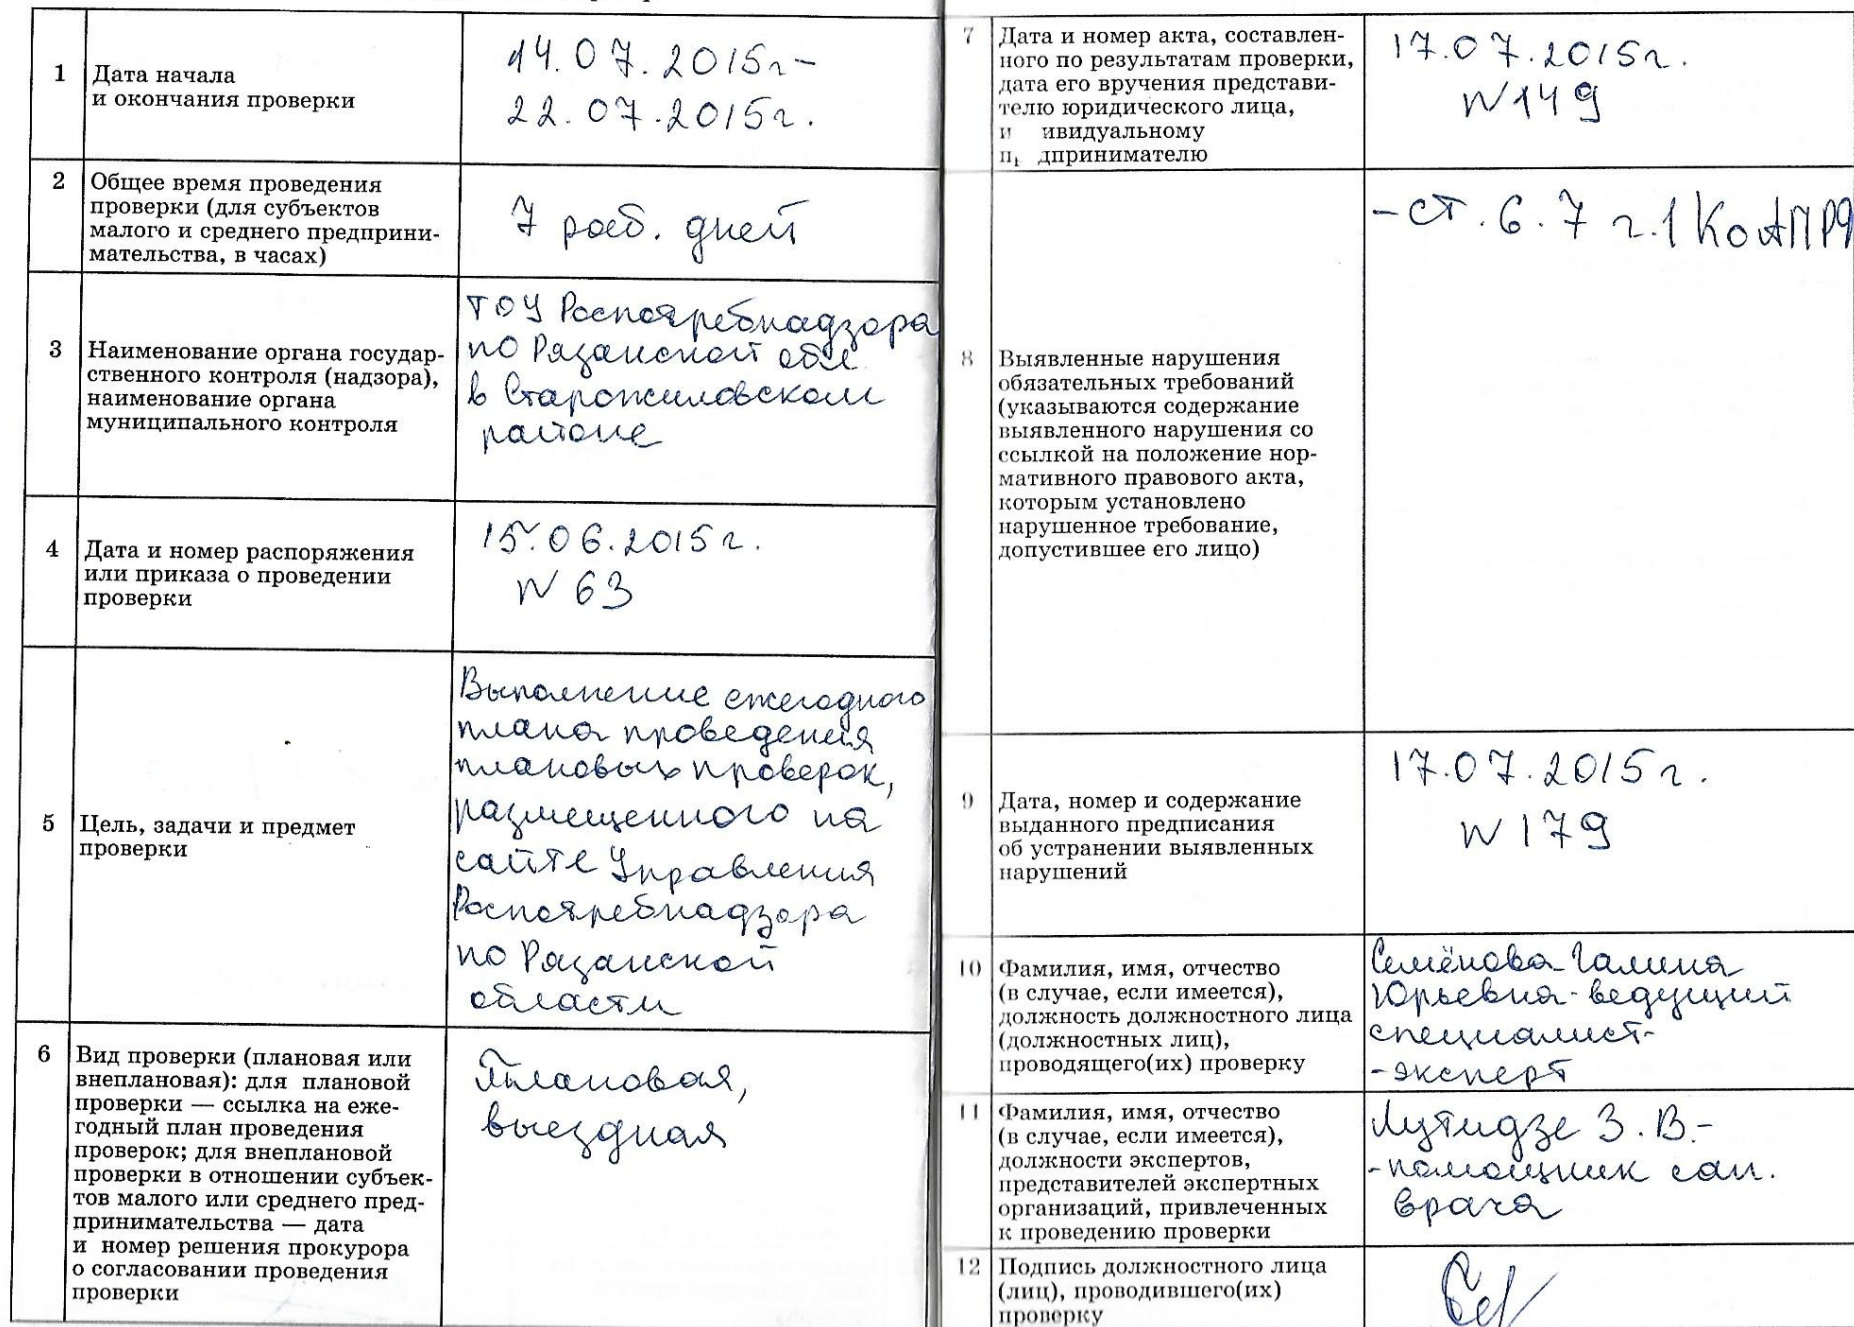 1
Дата начала
и окончания проверки
14.07.2015г-
22.07.2015г.
2
Общее время проведения
проверки (для субъектов
малого и среднего предприни-
мательства, в часах)
7 раб. дней
3
Наименование органа государ-
ственного контроля (надзора),
наименование органа
муниципального контроля
ТОУ Роспотребнадзора
по Рязанской обл
в Старожиловском
районе
4
Дата и номер распоряжения
или приказа о проведении
проверки
15.06.2015г.
N 63
5
Цель, задачи и предмет
проверки
Выполнение ежегодного
плана проведения
плановых проверок,
размещенного на
сайте Управления
Роспотребнадзора
по Рязанской
области
6
Вид проверки (плановая или
внеплановая): для плановой
проверки — ссылка на еже-
годный план проведения
проверок; для внеплановой
проверки в отношении субъек-
тов малого или среднего пред-
принимательства — дата
и номер решения прокурора
о согласовании проведения
проверки
Плановая,
выездная
7
Дата и номер акта, составлен-
ного по результатам проверки,
дата его вручения представи-
телю юридического лица,
и ивидуальному
п дпринимателю
17.07.2015г.
N 149
8
Выявленные нарушения
обязательных требований
(указываются содержание
выявленного нарушения со
ссылкой на положение нор-
мативного правового акта,
которым установлено
нарушенное требование,
допустившее его лицо)
- ст. 6.7 г.1 КоАПРФ
9
Дата, номер и содержание
выданного предписания
об устранении выявленных
нарушений
17.07.2015г.
N 179
10
Фамилия, имя, отчество
(в случае, если имеется),
должность должностного лица
(должностных лиц),
проводящего(их) проверку
Семёнова Галина
Юрьевна-ведущий
специалист-
-эксперт
11
Фамилия, имя, отчество
(в случае, если имеется),
должности экспертов,
представителей экспертных
организаций, привлеченных
к проведению проверки
Лутидзе З.В.-
-помощник сан.
врача
12
Подпись должностного лица
(лиц), проводившего(их)
проверку